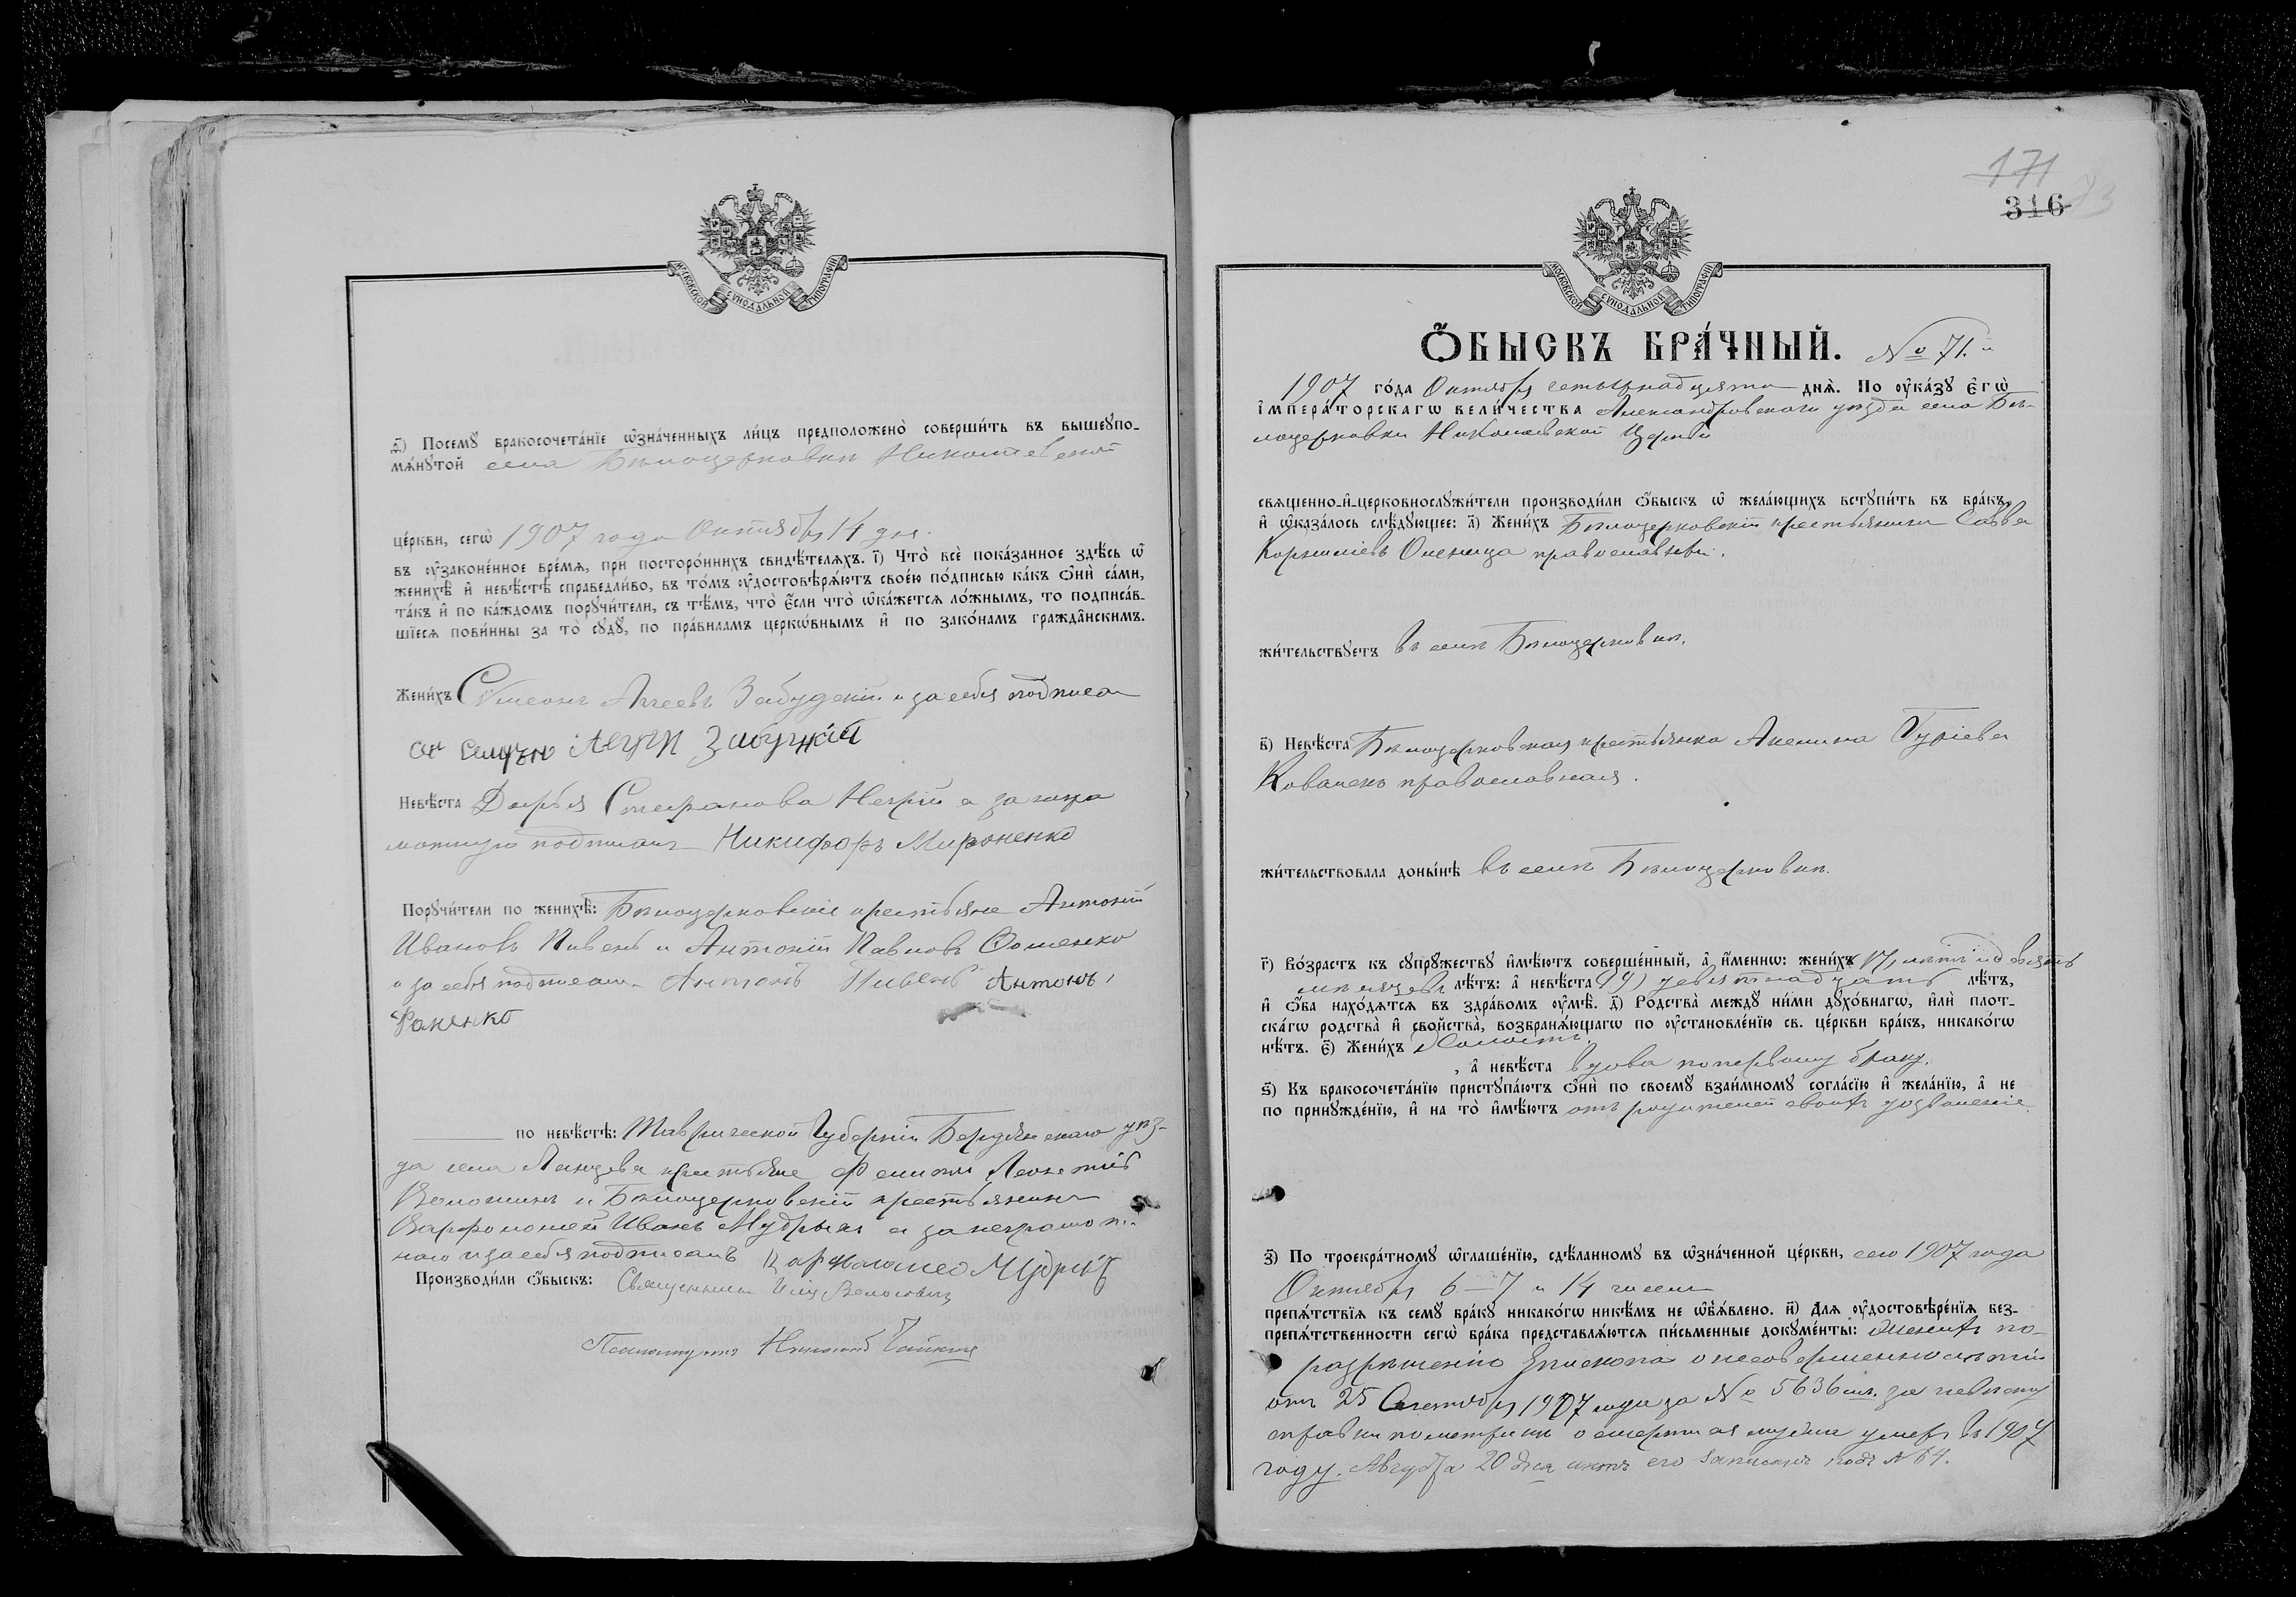 МОСКОВСКОЙ СѴНОДАЛЬНОЙ ТИПОГРАФІИ
д҃) Посемꙋ̀ бракосочета́нїе ѡ҆зна́ченныхъ ли́цъ предположено̀ соверши́ть въ вышеꙋпо-
мѧ́нꙋтой села Бѣлоцерковки Николаевской
це́ркви, сегѡ̀ 1907 года Октября 14 дня.
въ ᲂу҆законе́нное вре́мѧ, при посторо́ннихъ свидѣ́телѧхъ. і҃) Что̀ всѐ пока́занное здѣ́сь ѡ҆
женихѣ̀ и҆ невѣ́стѣ справедли́во, въ то́мъ ᲂу҆достовѣрѧ́ютъ свое́ю по́дписью ка́къ ѻ҆нѝ са́ми,
та́къ и҆ по ка́ждомъ порꙋчи́тели, съ тѣ́мъ, что̀ є҆́сли что̀ ѡ҆ка́жетсѧ ло́жнымъ, то подписа́в-
шїесѧ пови́нны за то̀ сꙋдꙋ̀, по пра́виламъ церкѡ́внымъ и҆ по зако́намъ гражда̑нскимъ.
Жени́хъ Симеонъ Аггеевъ Забудскій и за себя подписал
Невѣ́ста Дарья Стефанова Нехрій а за негра
мотную подписалъ Никифоръ Мироненко
Порꙋчи́тели по женихѣ̀: Бѣлоцерковскіе крестьяне Антоній
Ивановъ Пивень и Антоній Павловъ
и за себя подписали Антонъ Пивень Антонъ
по невѣ́стѣ: Таврической Губерніи Бердянскаго уѣз-
да села крестьяне Леонтіев
и Бѣлоцерковскій крестьянинъ
Варфоломей Иванъ Мудрый а за неграмот-
наго и за себя подписалъ Варфоломео Мудрый
Производи́ли ѻ҆́быскъ: Священникъ
Псаломщикъ Николай
171
316
73
МОСКОВСКОЙ СѴНОДАЛЬНОЙ ТИПОГРАФІИ
Ѻ҆́БЫСКЪ БРА́ЧНЫЙ. № 71.
1907 го́да Октября четырнадцатаго днѧ̀. По ᲂу҆ка́зꙋ є҆гѡ̀
і҆мпера́торскагѡ вели́чества Александровскаго уѣзда села Бѣ-
лоцерковки Николаевской Церкви
свѧщенно-и҆-церковнослꙋжи́тели производи́ли ѻ҆́быскъ ѡ҆ жела́ющихъ встꙋпи́ть въ бра́къ,
и҆ ѡ҆каза́лось слѣ́дꙋющее: а҃) Жени́хъ Бѣлоцерковскій крестьянинъ Савва
Корниліевъ православный.
жи́тельствꙋетъ въ селѣ Бѣлоцерковкѣ.
в҃) Невѣ́ста Бѣлоцерковская крестьянка Акилина Гуріева
Ковалень православная.
жи́тельствовала доны́нѣ въ селѣ Бѣлоцерковкѣ.
г҃) Во́зрастъ къ сꙋпрꙋ́жествꙋ и҆мѣ́ютъ соверше́нный, а҆ и҆́меннѡ: жени́хъ 17, лѣтъ и девять
мѣсяцевъ лѣ́тъ: а҆ невѣ́ста 19) девятнадцать лѣ́тъ,
и҆ ѻ҆́ба нахо́дѧтсѧ въ здра́вомъ ᲂу҆мѣ̀. д҃) Ро́дства̀ междꙋ̀ ни́ми дꙋхо́внагѡ, и҆лѝ плот-
ска́гѡ родства̀ и҆ сво́йства̀, возбранѧ́ющагѡ по ᲂу҆становле́нїю св. це́ркви бра́къ, никако́гѡ
нѣ́тъ. є҃) Жени́хъ Холостъ.
, а҆ невѣ́ста вдова по первому браку.
ѕ҃) Къ бракосочета́нїю пристꙋпа́ютъ ѻ҆нѝ по своемꙋ̀ взаи́мномꙋ согла́сїю и҆ жела́нїю, а҆ не
по принꙋжде́нїю, и҆ на то̀ и҆мѣ́ютъ отъ родителей своихъ дозволеніе.
з҃) По троекра́тномꙋ ѡ҆глаше́нїю, сдѣ́ланномꙋ въ ѡ҆зна́ченной це́ркви, сего 1907 года
Октября 6–7 и 14 числа
препѧ́тствїѧ къ семꙋ̀ бра́кꙋ никако́гѡ никѣ́мъ не ѡ҆б̾ѧ́влено. и҃) Длѧ ᲂу҆достовѣре́нїѧ без-
препѧ́тственности сегѡ̀ бра́ка представлѧ́ютсѧ пи́сьменные докꙋме́нты: Женихъ по
разрѣшенію Епископа о несовершеннолѣтіи
отъ 25 Сентября 1907 года за № 5636 за невѣсту
справки по метрикѣ о смерти ея мужа умеръ въ 1907
году. Августа 20 дня актъ его записанъ подъ № 64.